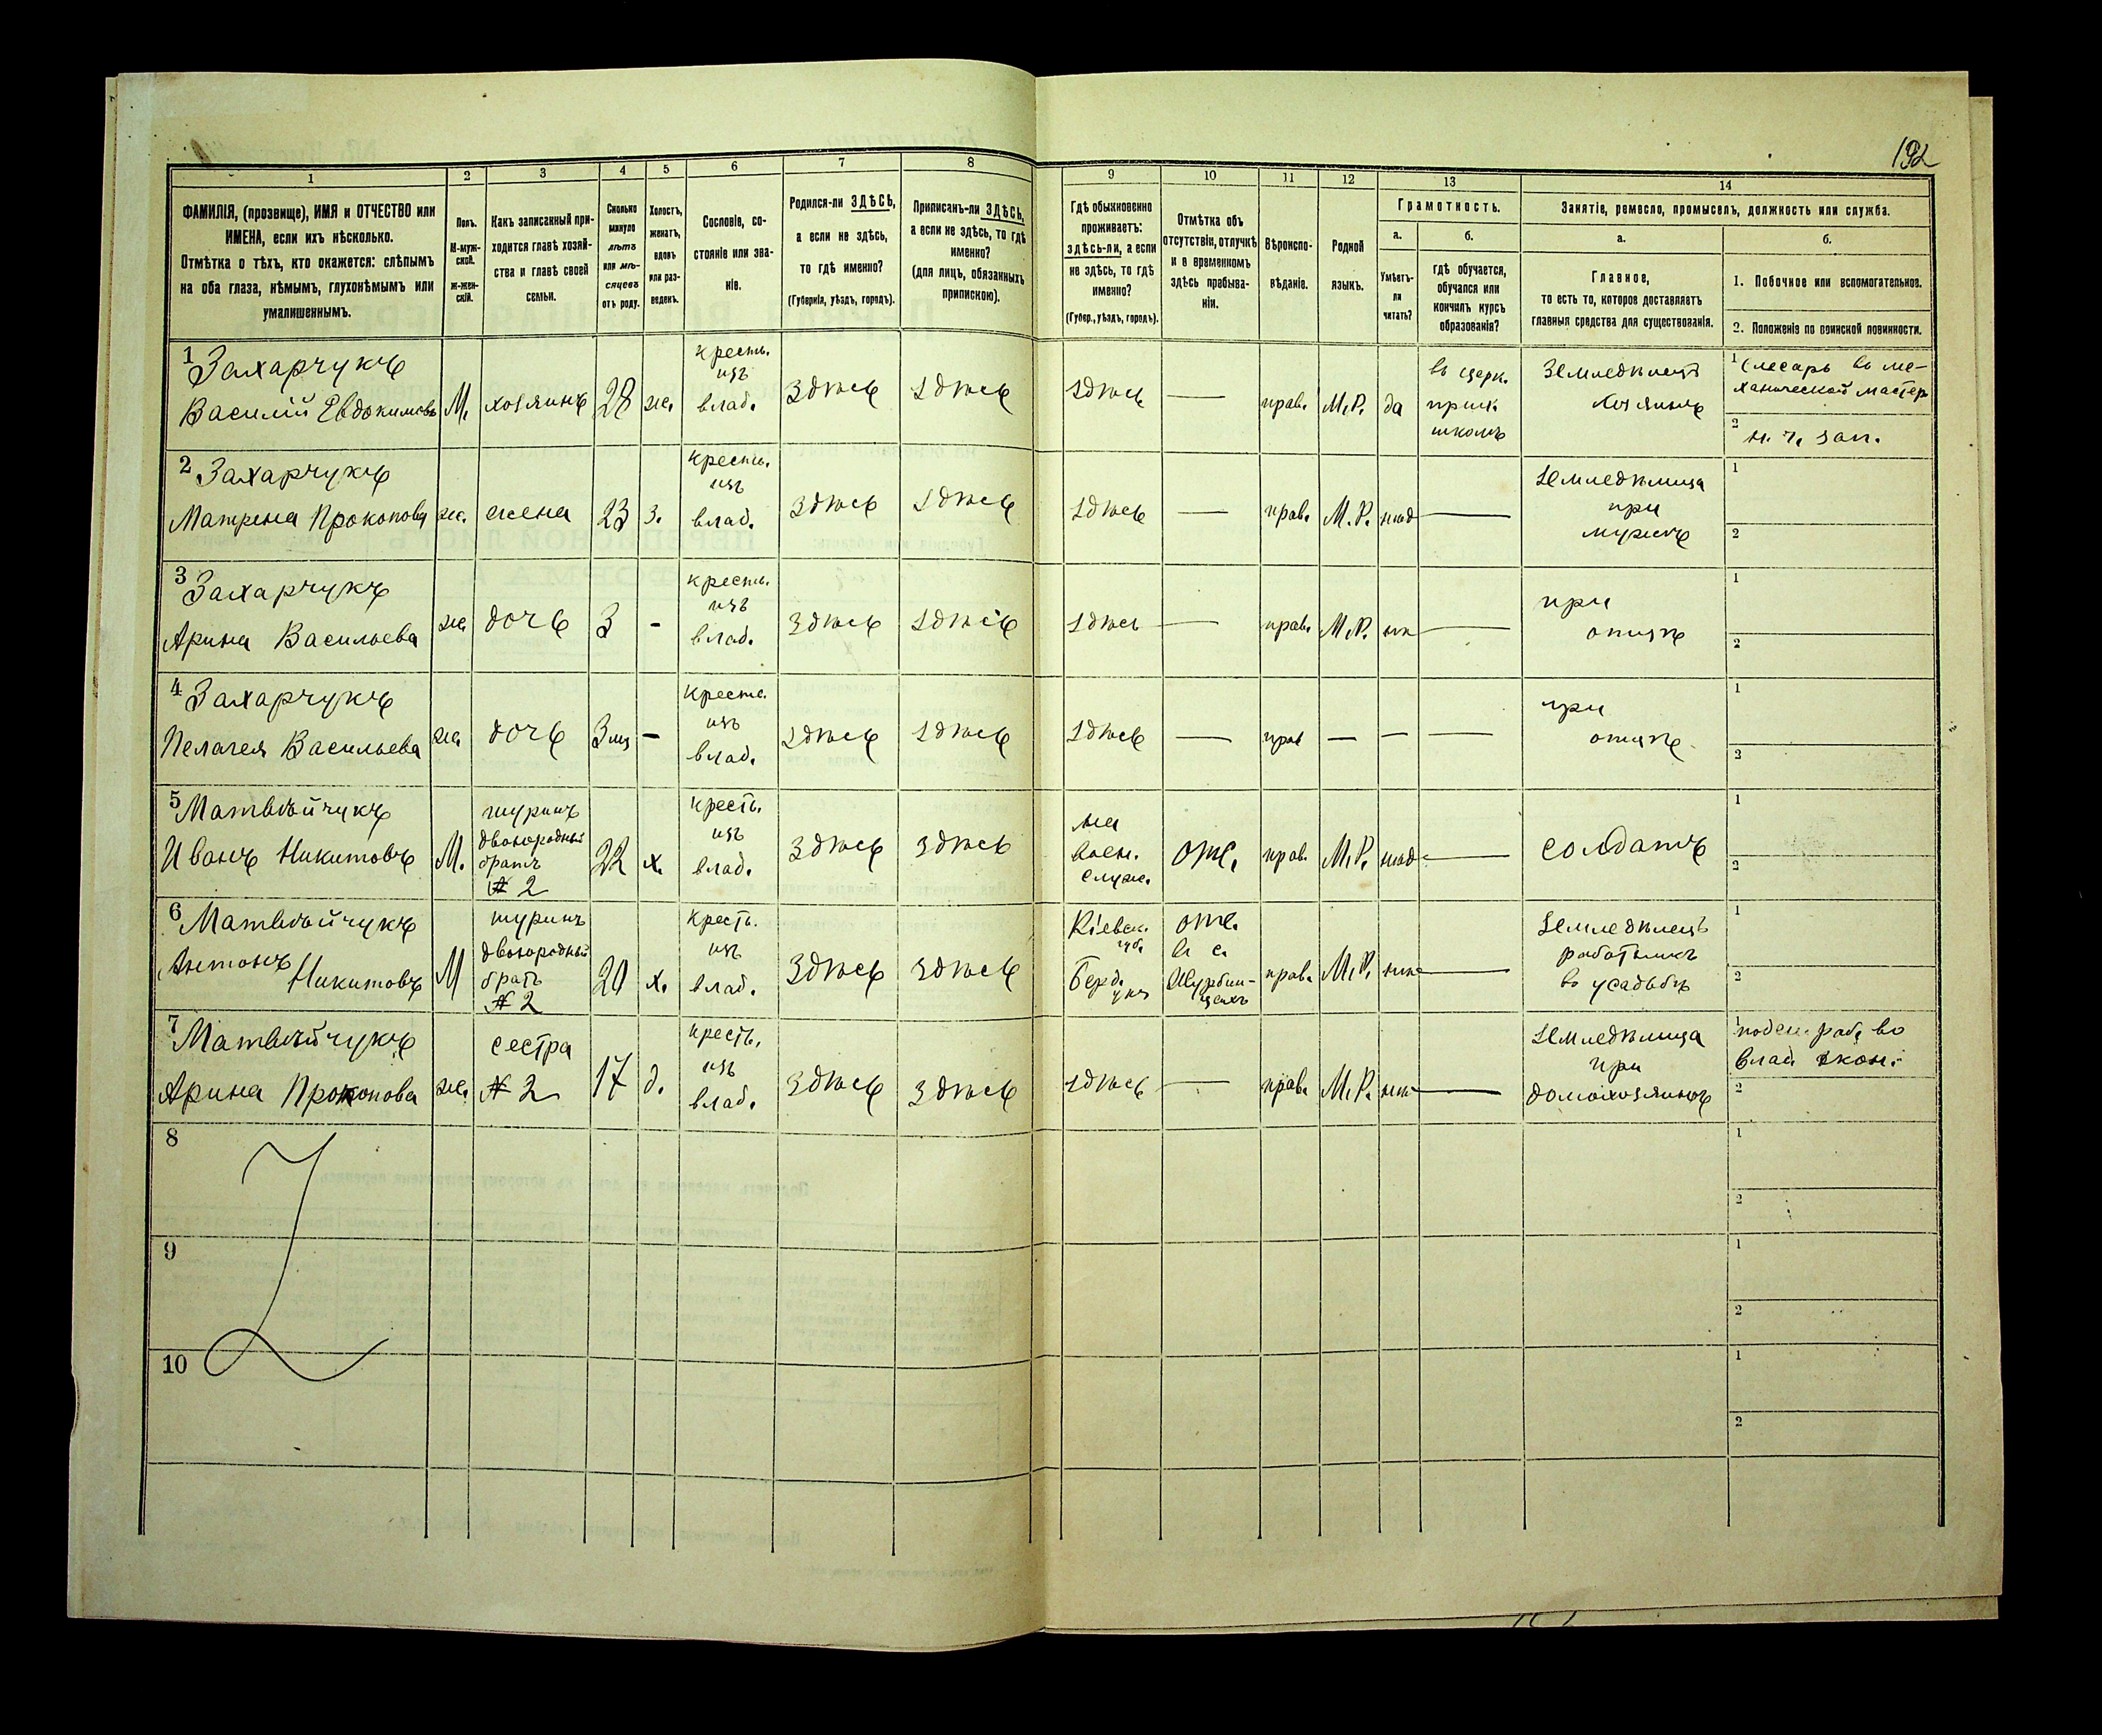 192
1 2 3 4 5 6 7 8 9 10 11 12 13 14
ФАМИЛІЯ, (прозвище), ИМЯ и ОТЧЕСТВО или
ИМЕНА, если ихъ нѣсколько.
Отмѣтка о тѣхъ, кто окажется: слѣпымъ
на оба глаза, нѣмымъ, глухонѣмымъ или
умалишеннымъ.
Полъ.
М-муж-
ской.
ж-жен-
скій.
Какъ записанный при-
ходится главѣ хозяй-
ства и главѣ своей
семьи.
Сколько
минуло
лѣтъ
или мѣ-
сяцевъ
отъ роду.
Холостъ,
женатъ,
вдовъ
или раз-
веденъ.
Сословіе, со-
стояніе или зва-
ніе.
Родился-ли ЗДѢСЬ,
а если не здѣсь,
то гдѣ именно?
(Губернія, уѣздъ, городъ).
Приписанъ-ли ЗДѢСЬ,
а если не здѣсь, то гдѣ
именно?
(для лицъ, обязанныхъ
припискою).
Гдѣ обыкновенно
проживаетъ:
здѣсь-ли, а если
не здѣсь, то гдѣ
именно?
(Губер., уѣздъ, городъ).
Отмѣтка объ
отсутствіи, отлучкѣ
и о временномъ
здѣсь пребыва-
ніи.
Вѣроиспо-
вѣданіе.
Родной
языкъ.
Грамотность.
а.
Умѣетъ-
ли
читать?
б.
гдѣ обучается,
обучался или
кончилъ курсъ
образованія?
Занятіе, ремесло, промыселъ, должность или служба.
а.
Главное,
то есть то, которое доставляетъ
главныя средства для существованія.
б.
1. Побочное или вспомогательное.
2. Положеніе по воинской повинности.
1 Захарчукъ
Василій Евдокимовъ
М.
хозяинъ
28
же.
кресть.
изъ
влад.
здѣсь
здѣсь
здѣсь
—
прав.
М.Р.
да
въ церк.
прих.
школѣ
Земледѣлецъ
хозяинъ
1 Слесарь въ ме-
ханической мастер
2 н. ч. зап.
2 Захарчукъ
Матрена Прокопова
же.
жена
23
з.
кресть.
изъ
влад.
здѣсь
здѣсь
здѣсь
—
прав.
М.Р.
—
земледѣлица
при
мужѣ
1
2
3 Захарчукъ
Арина Васильева
же.
дочь
3
-
кресть.
изъ
влад.
здѣсь
здѣсь
здѣсь
—
прав.
М.Р.
—
при
отцѣ
1
2
4 Захарчукъ
Пелагея Васильева
же
дочь
3 мц
-
кресть.
изъ
влад.
здѣсь
здѣсь
здѣсь
—
прав
—
—
—
при
отцѣ
1
2
5 Матвѣйчукъ
Иванъ Никитовъ
М.
шуринъ
двоюродный
братъ
№ 2
22
х.
кресть.
изъ
влад.
здѣсь
здѣсь
на
воен.
служ.
отс.
прав.
М.Р.
—
солдатъ
1
2
6 Матвѣйчукъ
Антонъ
Никитовъ
М
шуринъ
двоюродный
братъ
№ 2
20
х.
кресть.
изъ
влад.
здѣсь
здѣсь
Кіевск.
губ.
Берд.
у.
отс.
въ с.
прав.
М.Р.
—
земледѣлецъ
работникъ
въ усадьбѣ
1
2
7 Матвѣйчукъ
Арина Прокопова
же.
сестра
№ 2
17
д.
кресть.
изъ
влад.
здѣсь
здѣсь
здѣсь
—
прав.
М.Р.
—
земледѣлица
при
домохозяинѣ
1 поден. раб. во
влад. экон.
2
8
1
2
9
1
2
10
1
2